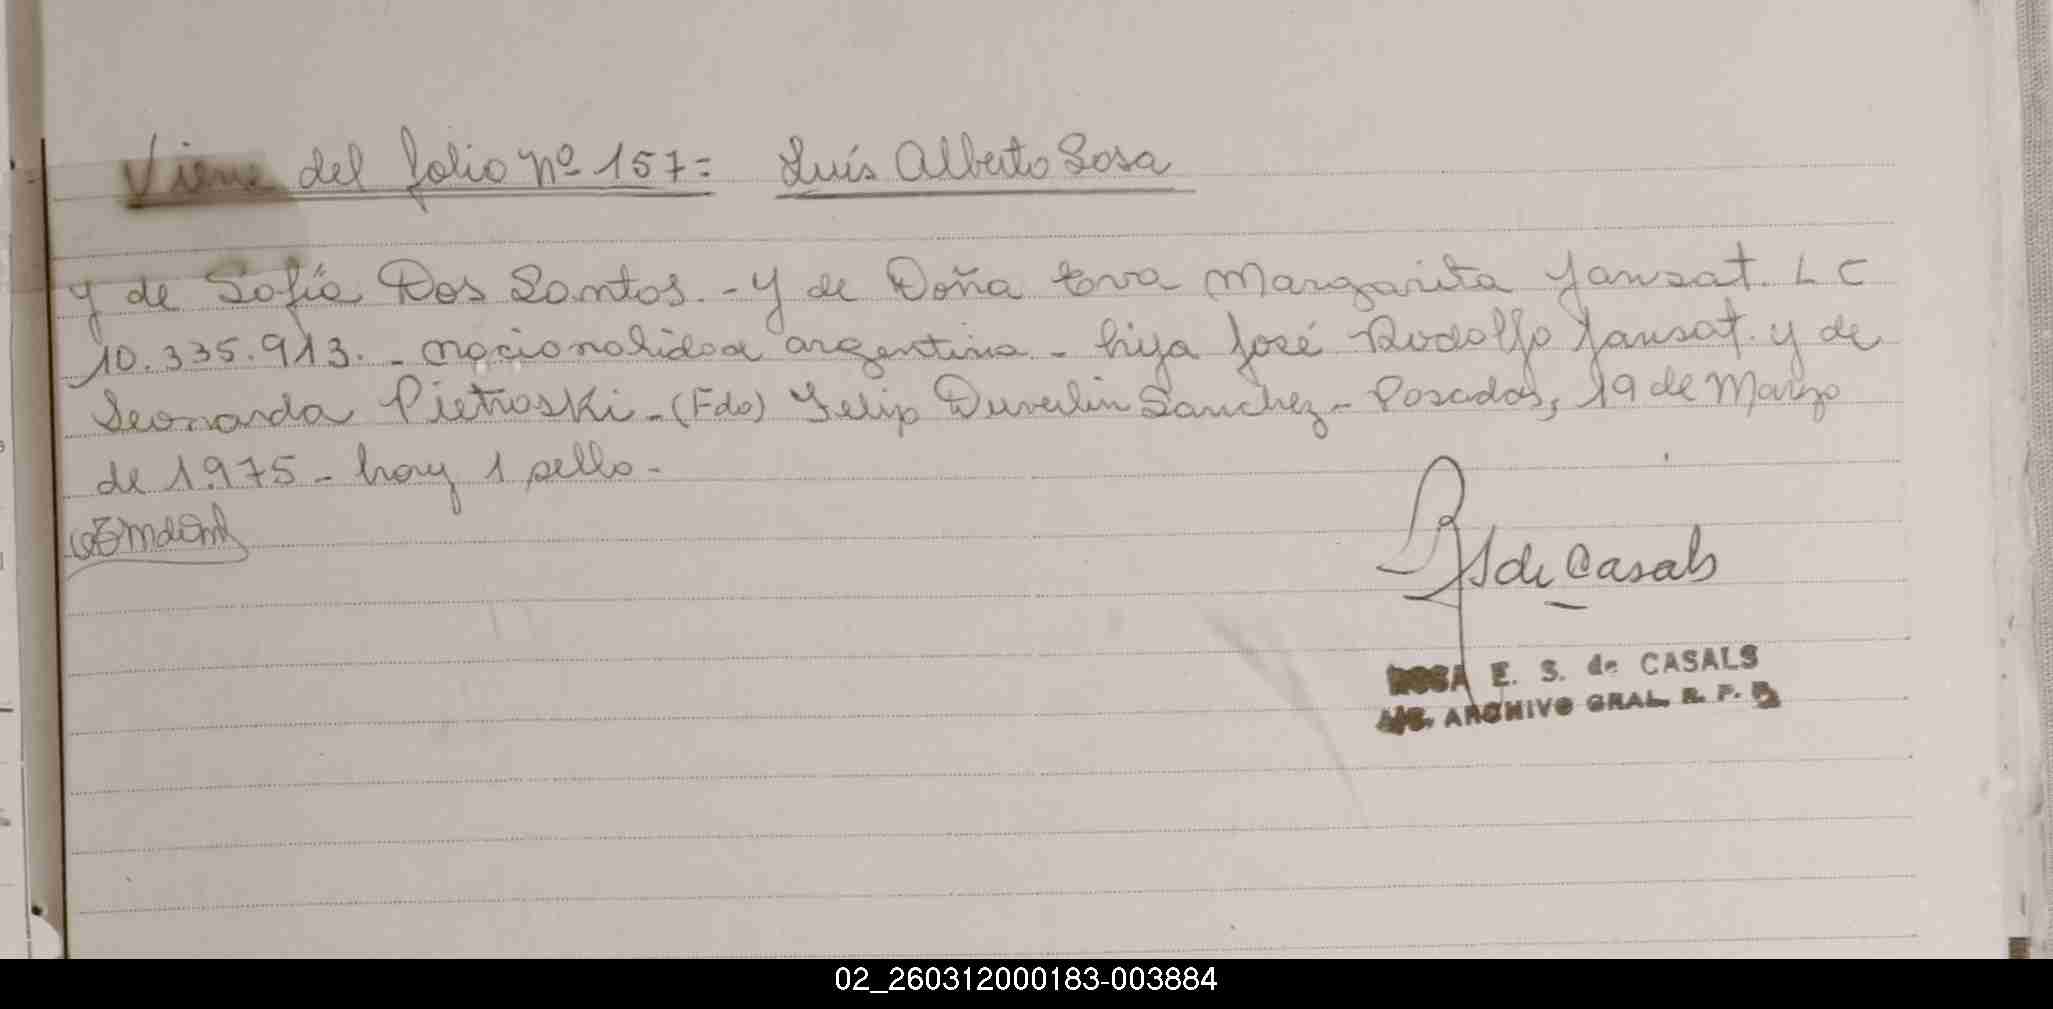 Viene del folio nº 157= Luís Alberto Sosa
y de Sofía Dos Santos.-y de Doña Eva Margarita Jansat. L C
10.335.913.- nacionalidad argentina - hija José Rodolfo Jansat. y de
Leonarda Pietroski-(Fdo) Felip Duverlin Sanchez- Posadas, 19 de Marzo
de 1.975- hay 1 sello-
de Casals
ROSA E. S. de CASALS
A/C. ARCHIVO GRAL. R. P. P.
02_260312000183-003884